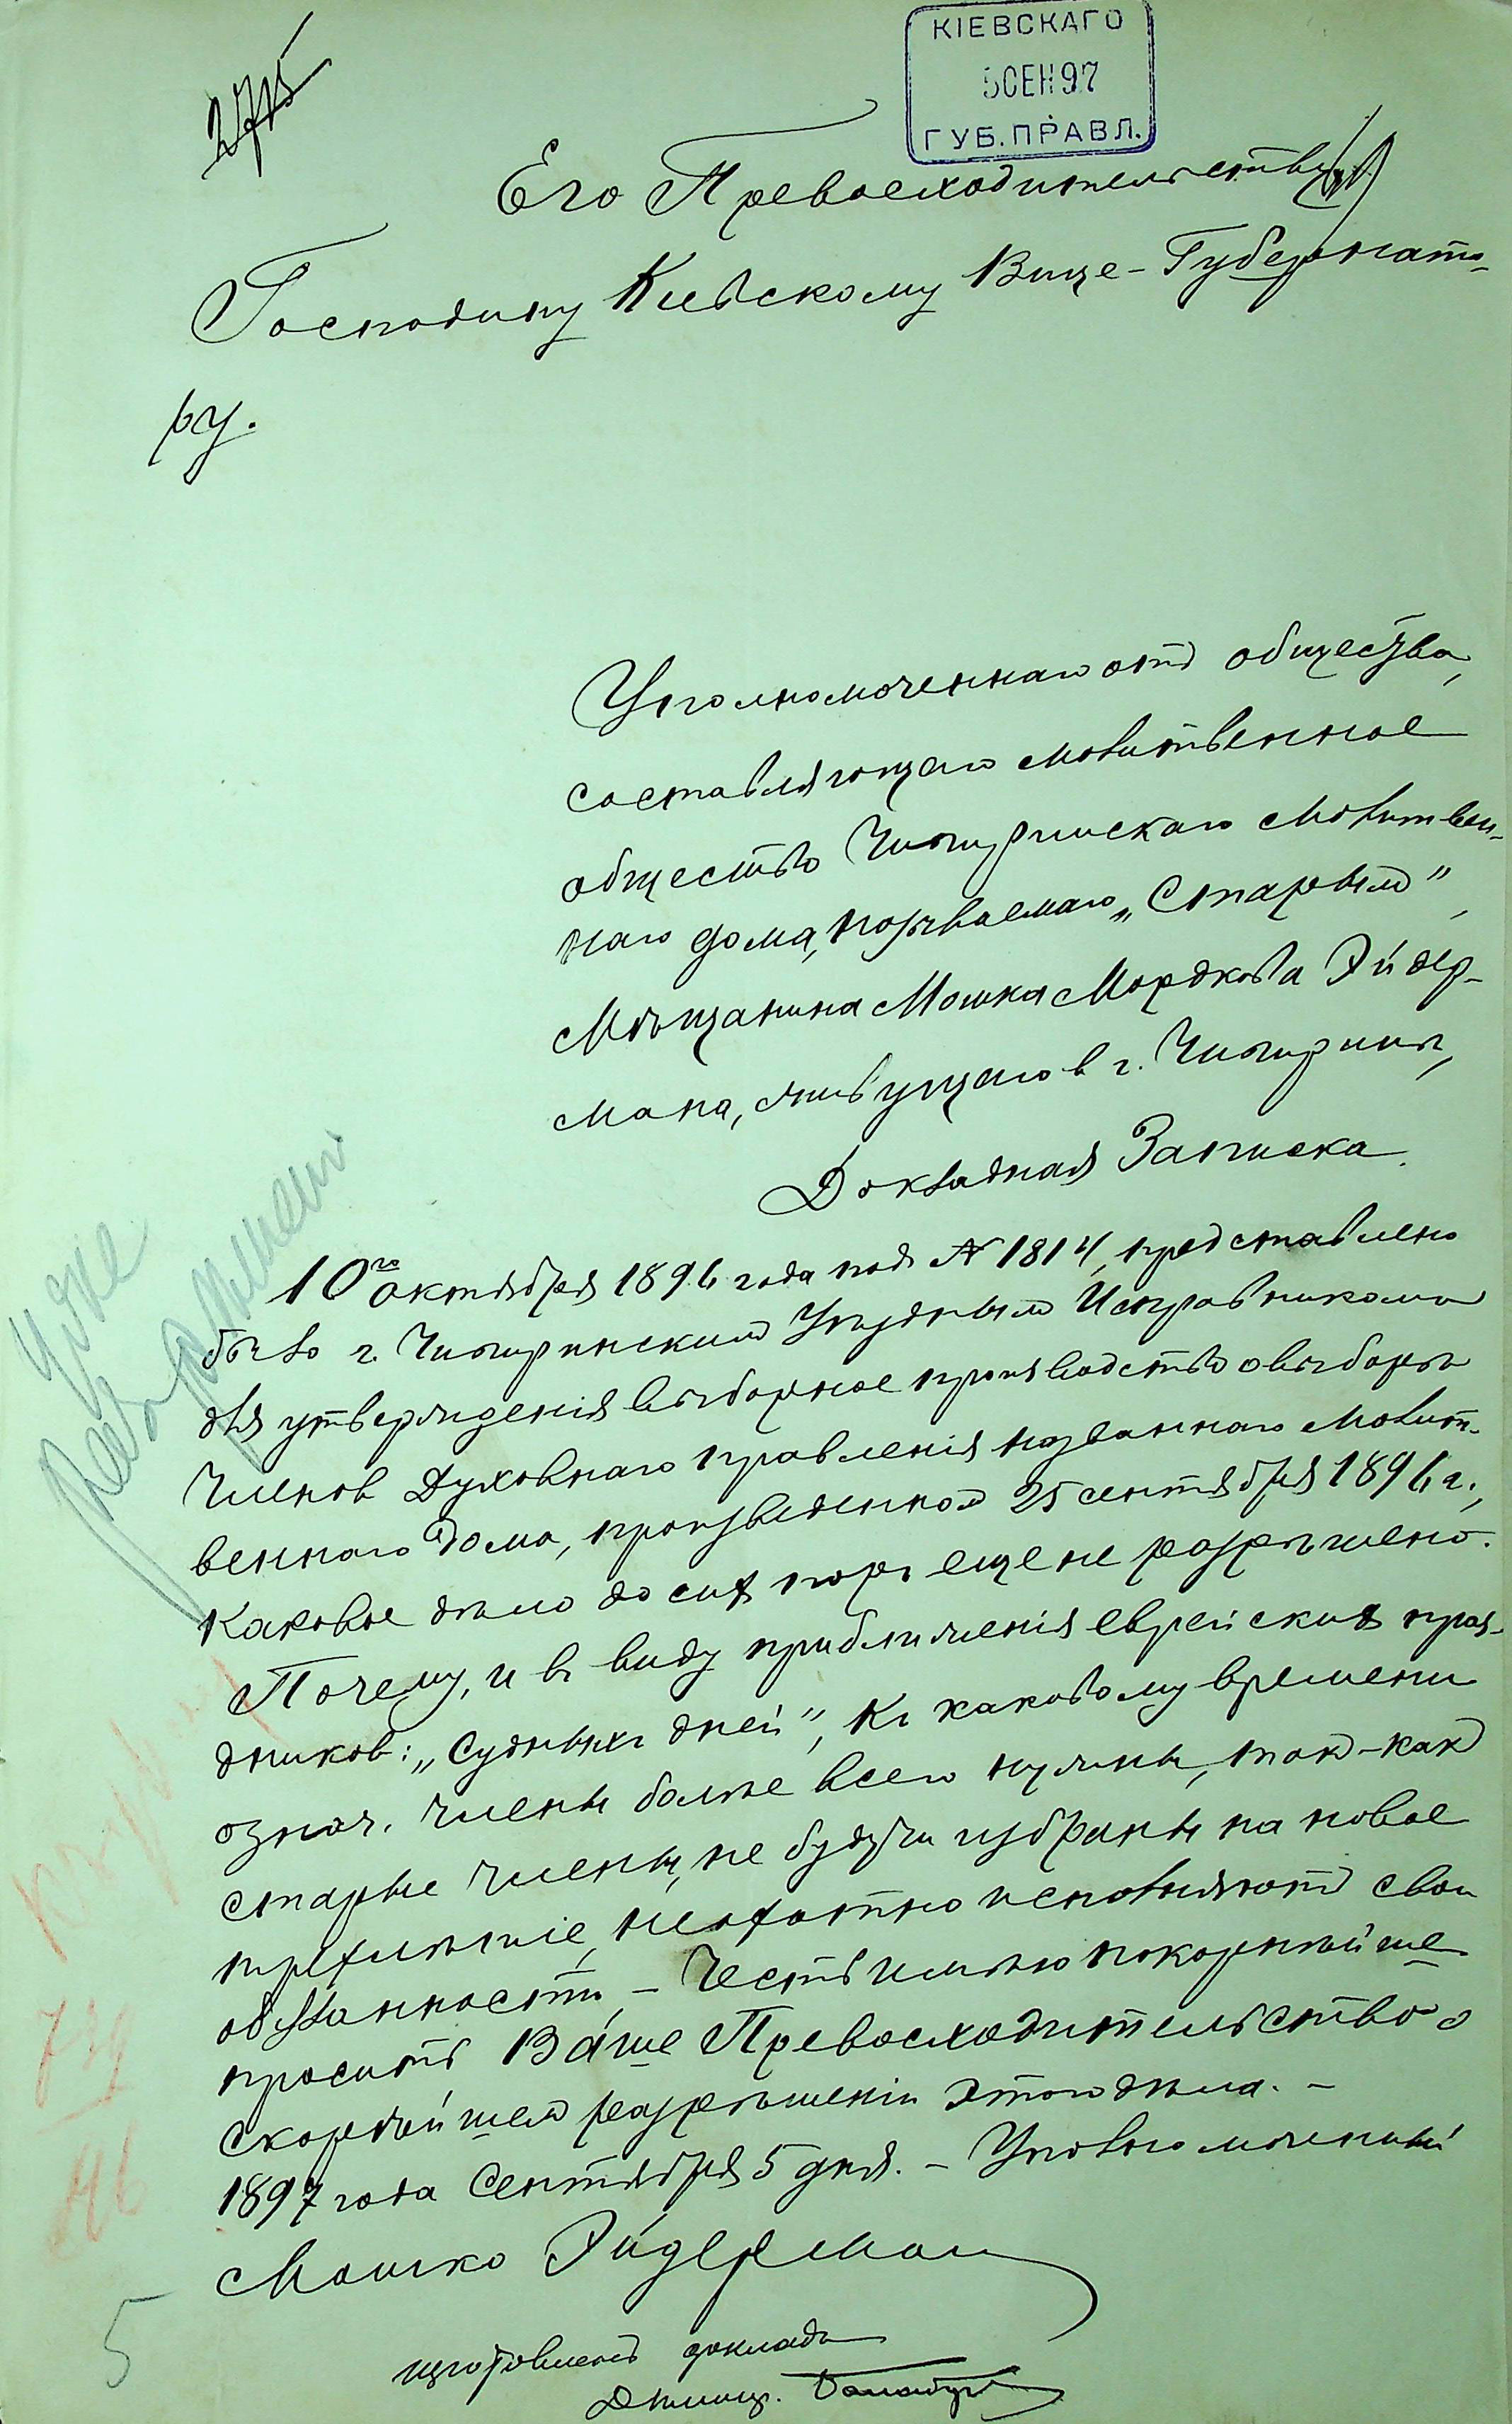 КІЕВСКАГО
5 СЕН 97
ГУБ. ПРАВЛ.
Его Превосходительству
Господину Киевскому Вице-Губернато-
ру.
Уполномоченнаго отъ общества,
составляющаго молитвенное
общество Чигиринскаго молитвен-
наго дома, называемаго „Старым",
Мѣщанина Мошка Мордкова Эйдер-
мана, живущаго в г. Чигиринѣ,
Докладная Записка.
10го октября 1896 года подъ № 1814, представлено
было г. Чигиринским Уѣздным Исправником
для утвержденія выборное производство о выборѣ
Членов Духовнаго правленія названнаго молит-
веннаго дома, произведенном 25 сентября 1896 г.,
каковое дѣло до сих поръ еще не разрѣшено.
Почему, и въ виду приближенія еврейских праз-
дников: „Судныхъ дней", къ каковому времени
означ. члены болѣе всего нужны, так-как
старые члены, не будучи избраны на новое
трехлѣтіе, неохотно исполняютъ свои
обязанности, – Честь имѣю покорнѣйше
просить Ваше Превосходительство о
скорѣйшем разрѣшеніи этого дѣла. –
1897 года Сентября 5 дня. – Уполномоченный
Мошко Эйдерман
изготовленъ докладъ
Уже
5